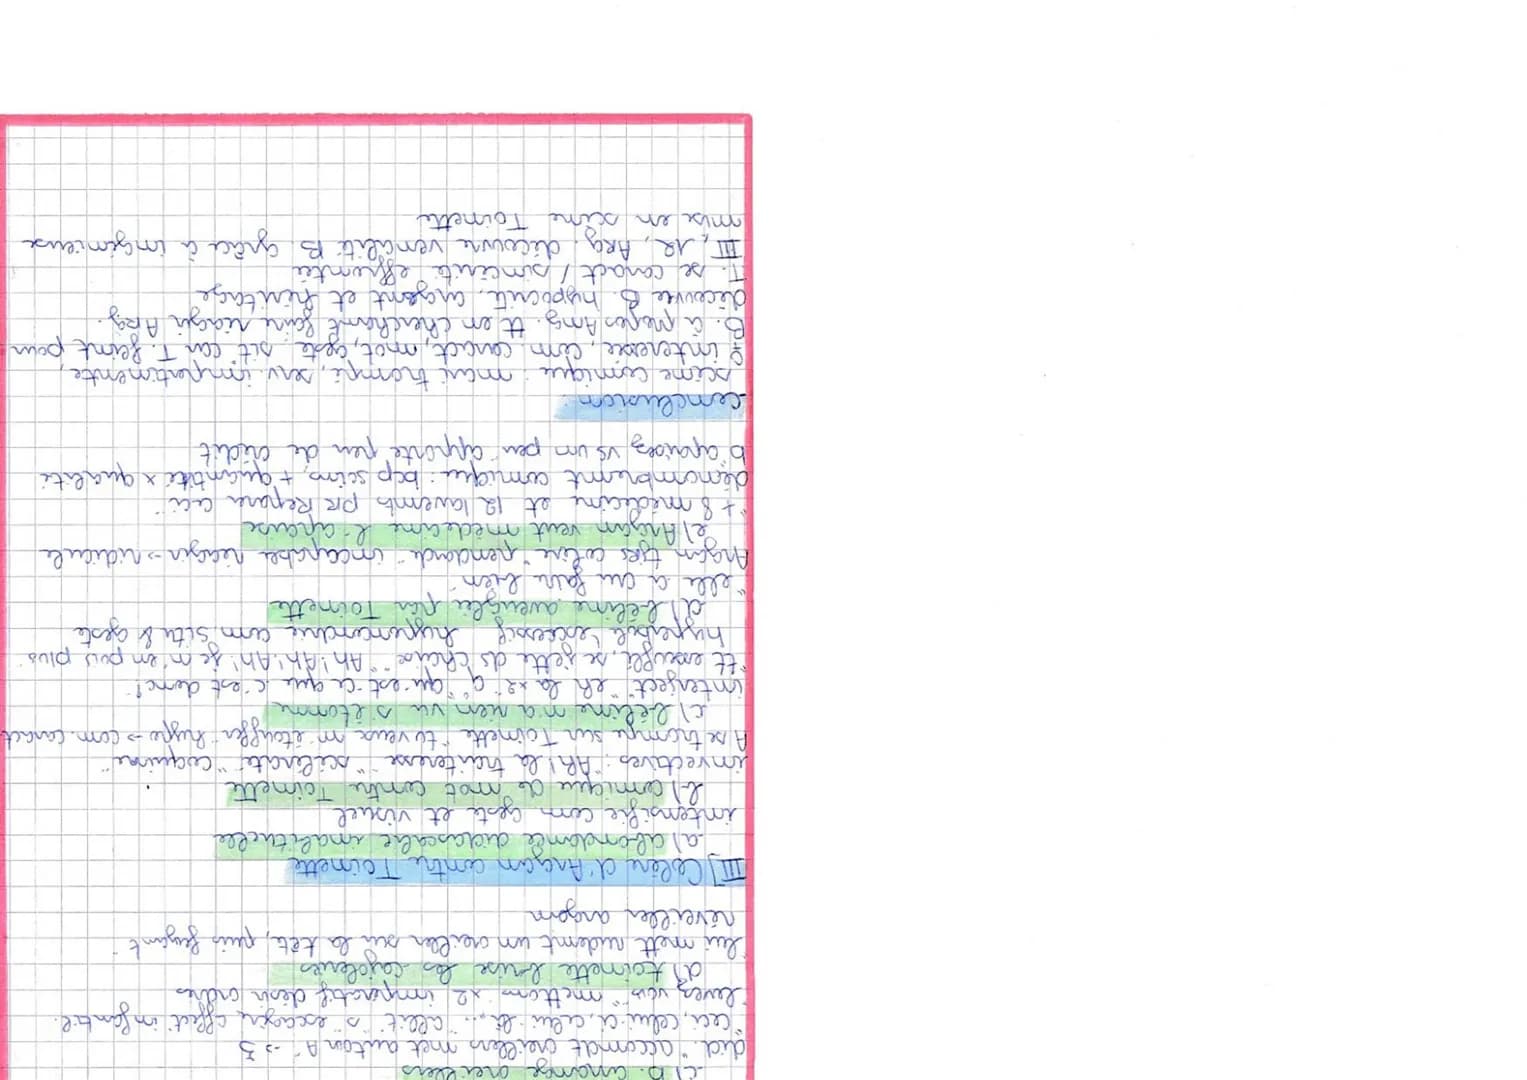 c) B. arrange oreillers
did. "accomodt oreillers met autour A" -> 3
"ceci, celui ci, celui là..." allit° s exagère affect infantil.
"levez vous" "mettons" x2 impératif désir ordres
d) toinette brise les cajoleries
"lui mett rudemt un oreiller sur la tête, puis fuyant"
réveiller argan
III] Colère d'Argan contre Toinette
a) abondance didascalie inabituelle
intensifie com geste et visuel
b) comique de mot contre Toinette
invectives : "Ah! la traiteresse" "scélérate" "coquine"
A se trompe sur Toinette "tu veux m'étouffer" hypo -> com. caract
c) béline n'a rien vu s'étonne
interject° "eh la" x2 "q" "qu'est-ce que c'est donc!"
"tt essoufflé, se jette ds chaise" "Ah! Ah! Ah! je n'en puis plus"
hyperbole (excessif) hypocondrie com. situ & geste
d) béline aveuglée par Toinette
"elle a cru faire bien"
Argan tjrs colère "pendarde" incapable réagir -> ridicule
e) Argan veut médecine l'apaise
"+ 8 médecine et 12 lavemts pr réparer ceci"
dénombremt comique : bcp soins, + quantité x qualité
b "apaisez vs un peu" apporte peu de crédit
conclusion
scène comique : mari trompé, serv. impertinente,
♀ interessé, com. caract, mot, geste, sit car T. feint pour
B. à propos Ang. tt en cherchant faire réagir Arg.
découvre B. hypocrite, argent et héritage
T. se caract / sincérité effrontée
III, 12, Arg. découvre vénalité B. grâce à ingénieuse
mise en scène Toinette